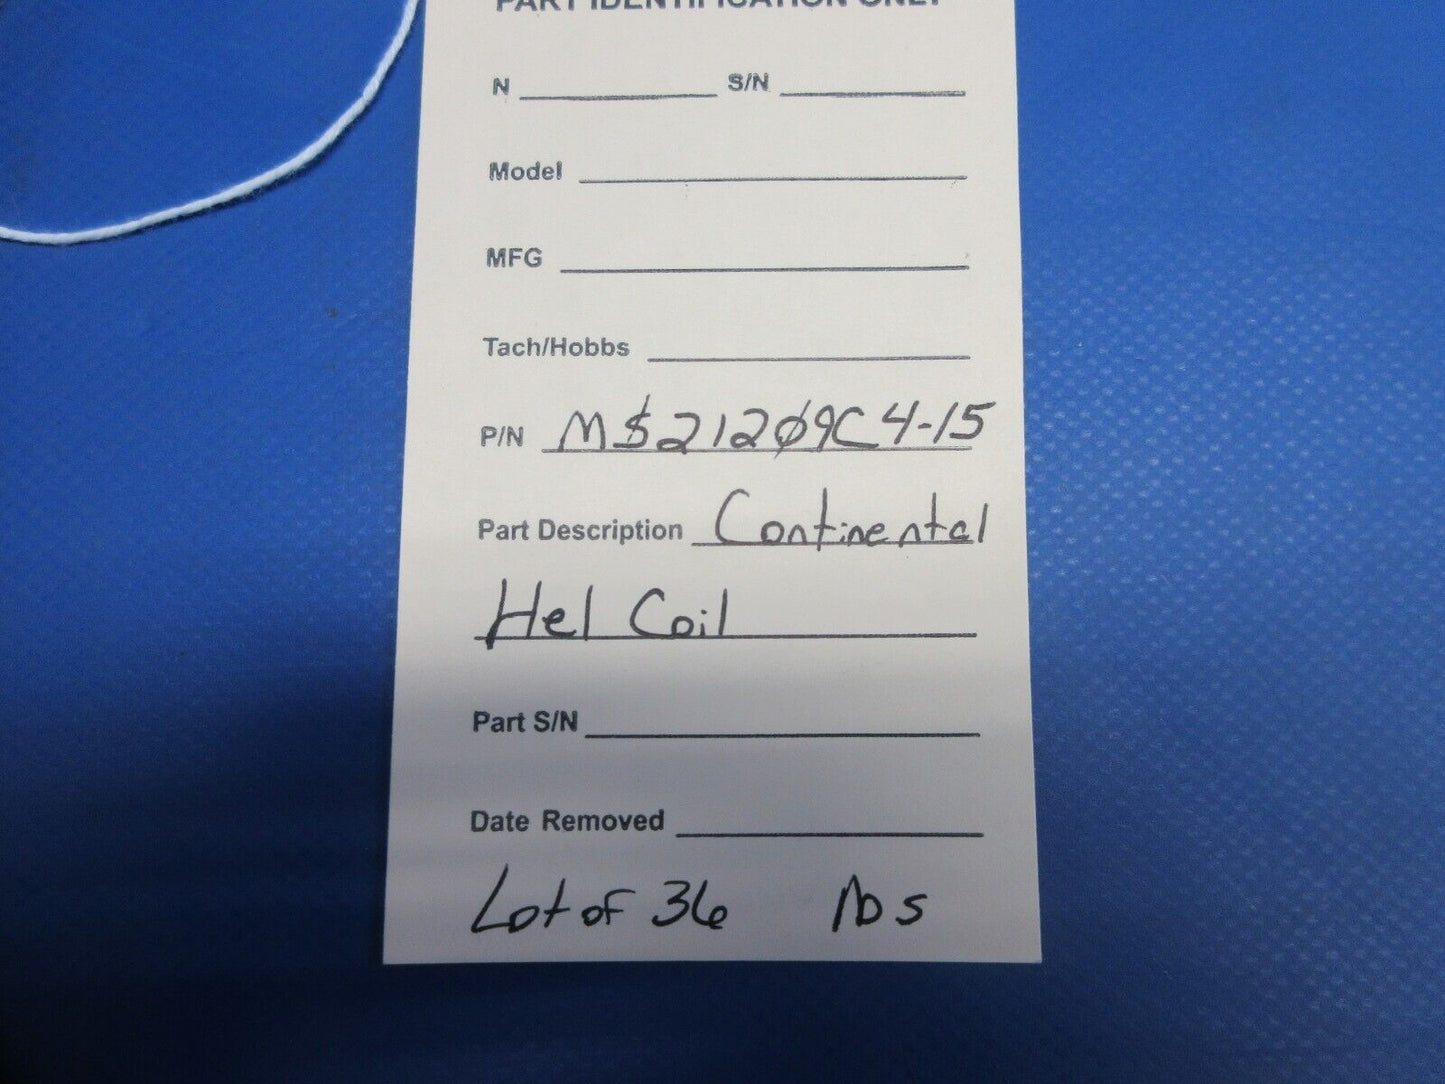 PART IDENTIFICATION ONLY
N S/N
Model
MFG
Tach/Hobbs
P/N MS21209C4-15
Part Description Continental
Hel Coil
Part S/N
Date Removed
Lot of 36 NOS